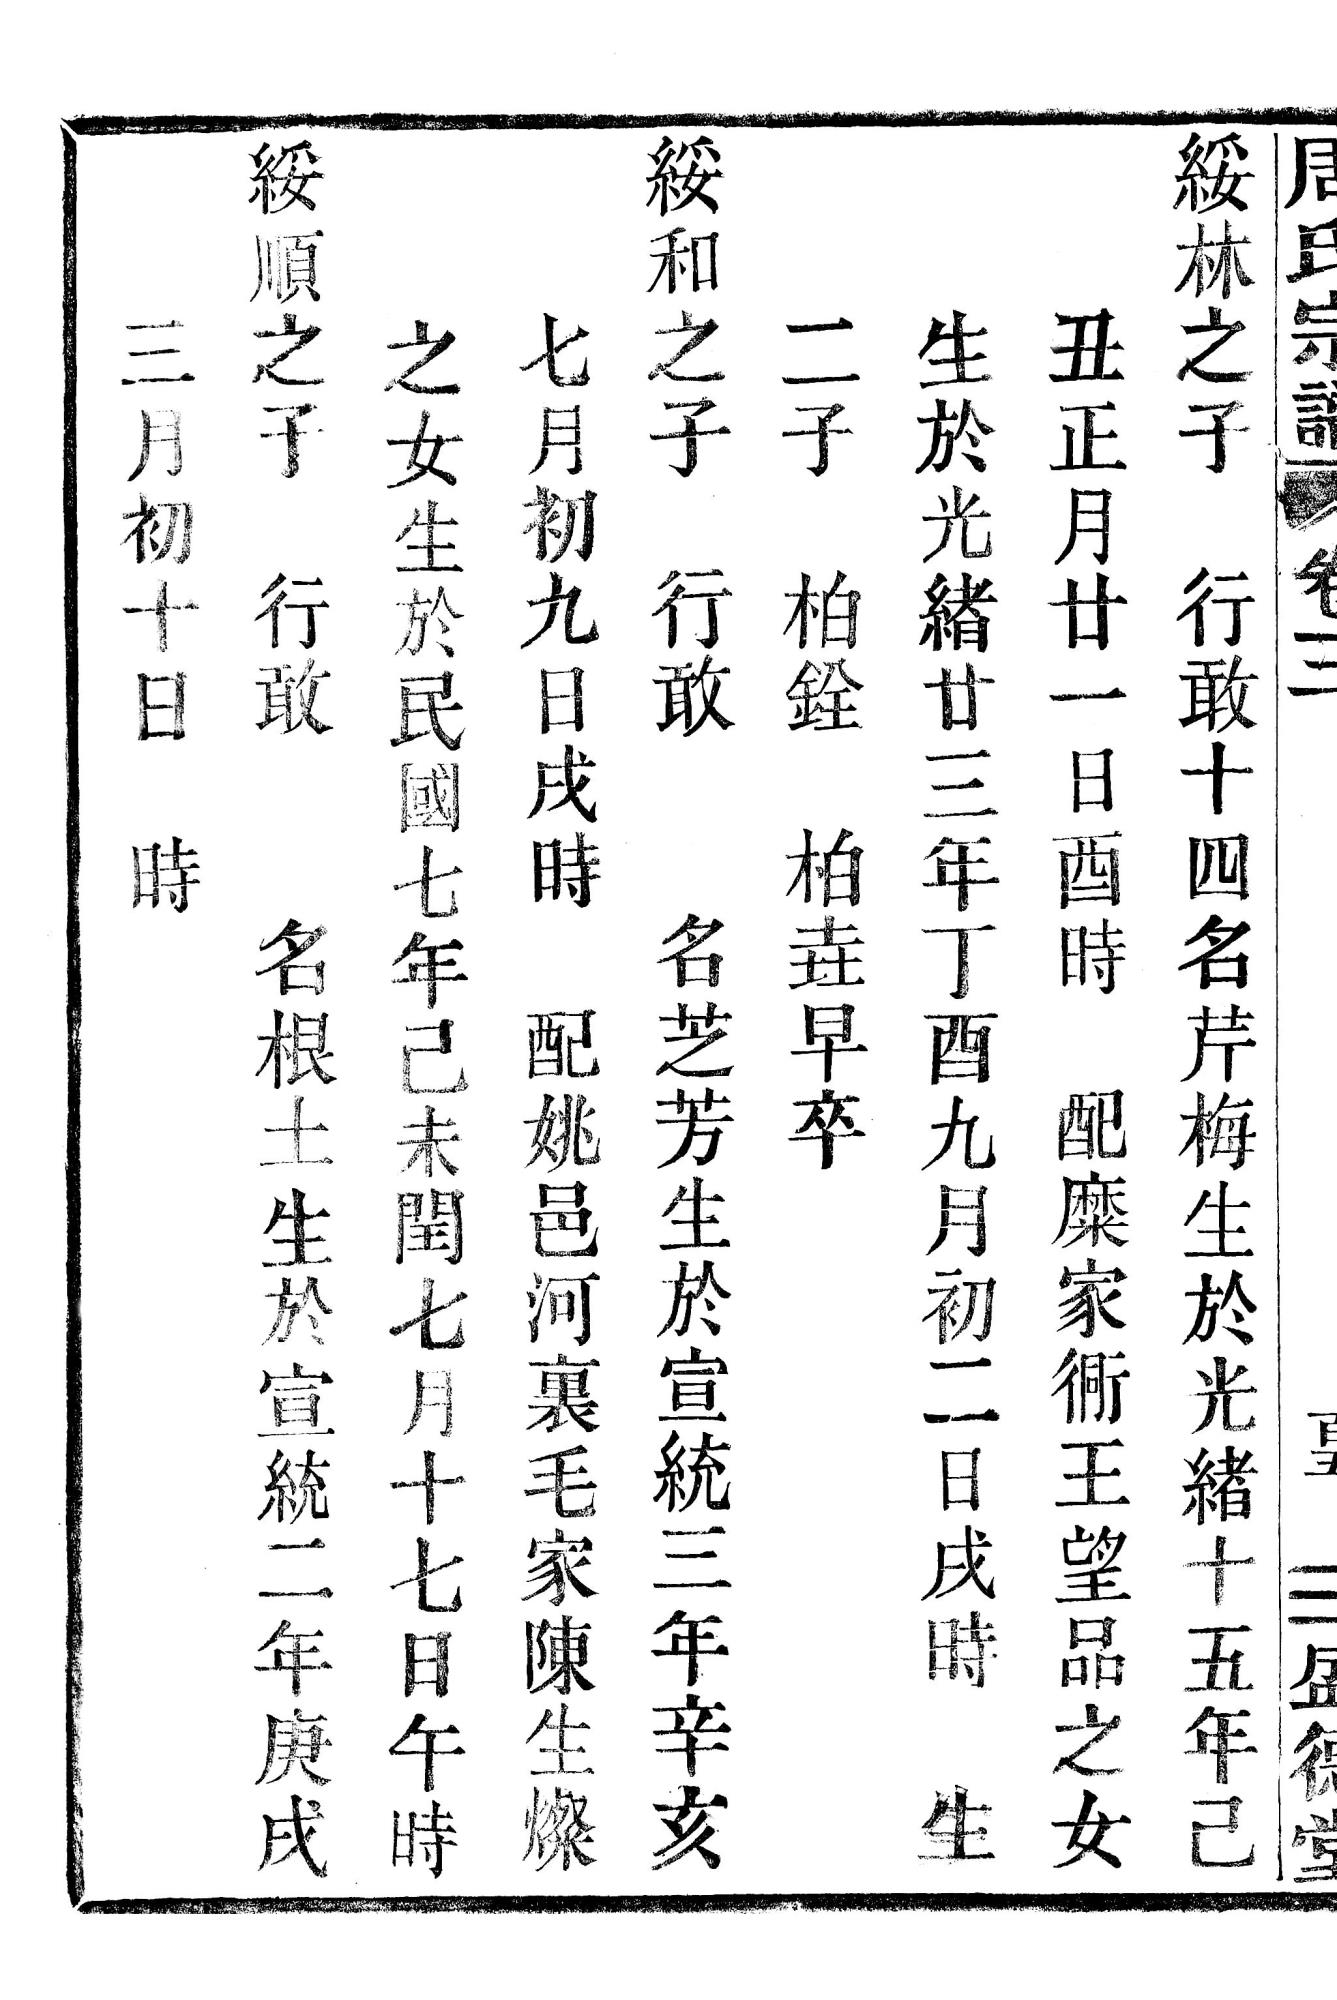 周氏宗譜 卷三 三盛德堂
綏林之子 行敢十四名芹梅生於光緒十五年己
丑正月廿一日酉時 配糜家衕王望品之女
生於光緒廿三年丁酉九月初二日戌時 生
二子 柏銓 柏垚早卒
綏和之子 行敢 名芝芳生於宣統三年辛亥
七月初九日戌時 配姚邑河裏毛家陳生燦
之女生於民國七年己未閏七月十七日午時
綏順之子 行敢 名根土生於宣統二年庚戌
三月初十日 時